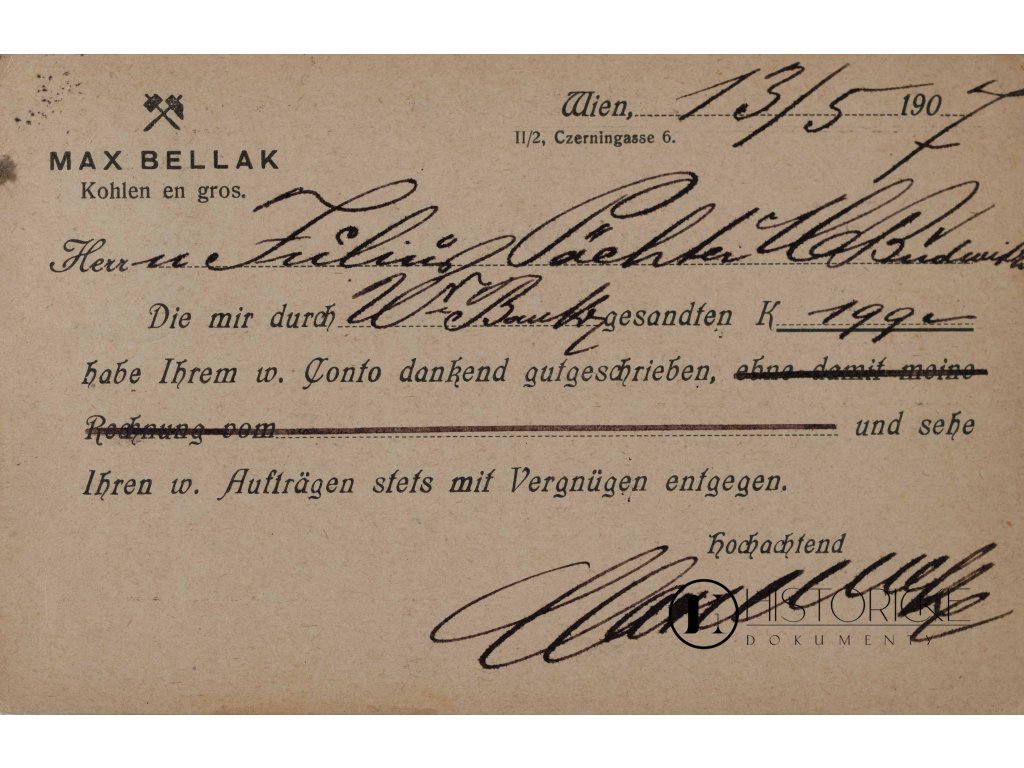 Wien, 13/5 1907
II/2, Czerningasse 6.
MAX BELLAK
Kohlen en gros.
Herrn Julius Pächter M Budwitz
Die mir durch Wr Bank gesandten K 199
habe Ihrem w. Conto dankend gutgeschrieben, ohne damit meine
Rechnung vom und sehe
Ihren w. Aufträgen stets mit Vergnügen entgegen.
Hochachtend
HISTORICKÉ
DOKUMENTY